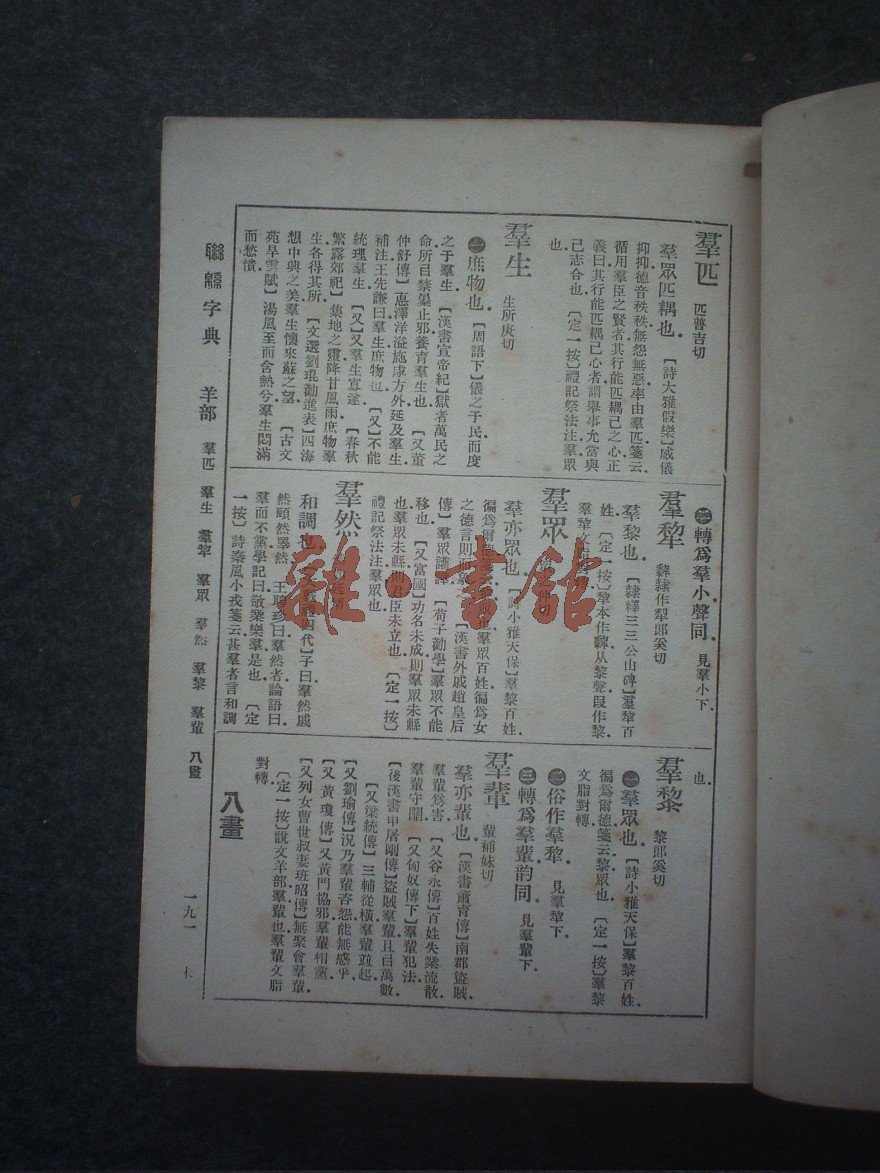 羣匹 匹普吉切
羣眾匹耦也．【詩大雅假樂】威儀
抑抑德音秩秩無怨無惡率由羣匹箋云
循用羣臣之賢者其行能匹耦己之心正
義曰其行能匹耦己心者謂舉事允當與
己志合也．〔定一按〕禮記祭法注羣眾
也．
羣生 生所庚切
㊀庶物也．【周語下】儀之于民而度
之于羣生．【漢書宣帝紀】獄者萬民之
命所㠯禁㬥止邪養育羣生也．【又董
仲舒傳】悳澤洋溢施虖方外延及羣生
補注王先謙曰羣生庶物也．【又】不能
統理羣生．【又】又羣生寡遂．【春秋
繁露郊祀】集地之靈降甘風雨庶物羣
生各得其所．【文選劉琨勸進表】四海
想中興之美羣生懷來蘇之望．【古文
苑旱雲賦】湯風至而含熱兮羣生悶滿
而愁憒．
㊁轉爲羣小聲同．見羣小下．
羣犂 郎奚切
羣黎也．【隸釋三三公山碑】羣犂百
姓．
羣眾
羣亦眾也．【詩小雅天保】羣黎百姓
徧爲爾德
之德言則而象之．【漢書外戚趙皇后
傳】羣眾讙譁．【荀子勸學】羣眾不能
移也．【又富國】功名未成則羣眾未縣
也羣眾未縣則君臣未立也．〔定一按〕
禮記祭法注羣眾也．
羣然
和調也．子曰羣然戚
然頤然睪然
王聘珍曰羣然者論語曰
羣而不黨學記曰敬業樂羣是也．〔定
一按〕詩秦風小戎箋云甚羣者言和調
也．
羣黎 黎郎奚切
㊀羣眾也．【詩小雅天保】羣黎百姓
徧爲爾德箋云黎眾也．〔定一按〕羣黎
文脂對轉．
㊁俗作羣犂．見羣犂下．
㊂轉爲羣輩韵同．見羣輩下．
羣輩 輩補妹切
羣亦輩也．【漢書蕭育傳】南郡盜賊
羣輩爲害．【又谷永傳】百姓失業流散
羣輩守關．【又匈奴傳下】羣輩犯法．
【後漢書申屠剛傳】盜賊羣輩且㠯萬數
【又梁統傳】三輔從橫羣輩並起．
【又劉瑜傳】況乃羣輩咨怨能無感乎．
【又黃瓊傳】又黃門協邪羣輩相黨．
【又列女曹世叔妻班昭傳】無聚會羣輩
〔定一按〕說文羊部羣輩也羣輩文脂
對轉．
八畫
聯緜字典 羊部 羣匹 羣生 羣犂 羣眾 羣然 羣黎 羣輩 八畫 一九一
雜書館